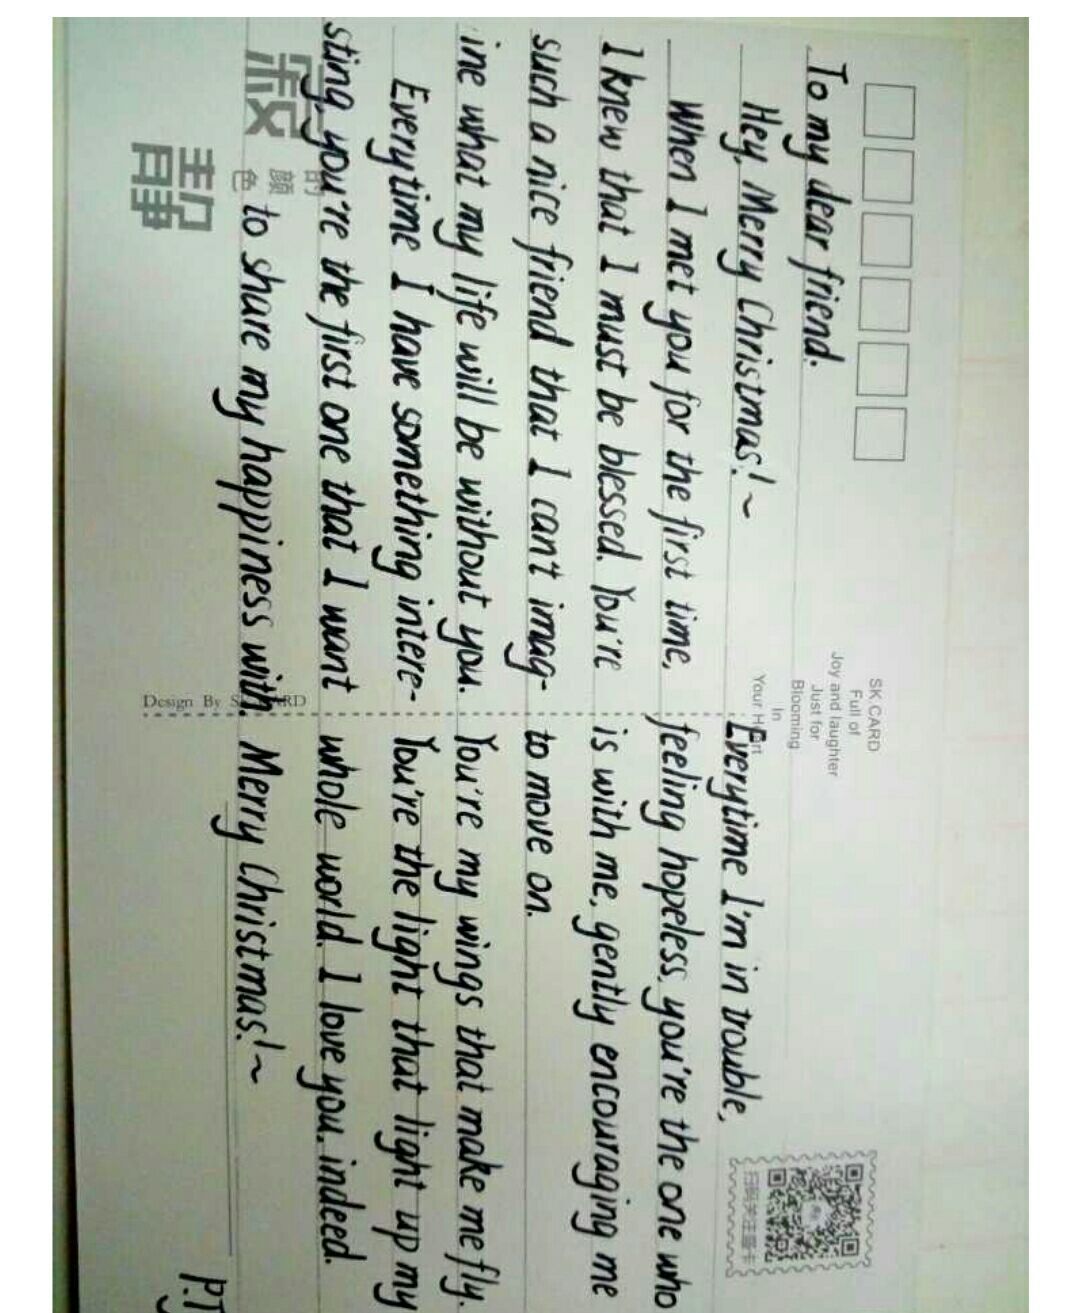 SK CARD
Full of
Joy and laughter
Just for
Blooming
In
Your Heart
To my dear friend.
Hey, Merry Christmas!~
When I met you for the first time,
I knew that I must be blessed. You're
such a nice friend that I can't imag-
ine what my life will be without you.
Everytime I have something intere-
sting, you're the first one that I want
to share my happiness with.
Everytime I'm in trouble,
feeling hopeless, you're the one who
is with me, gently encouraging me
to move on.
You're my wings that make me fly.
You're the light that light up my
whole world. I love you, indeed.
Merry Christmas!~
P.T
的
颜
色
静
Design By SK CARD
扫码关注盛卡